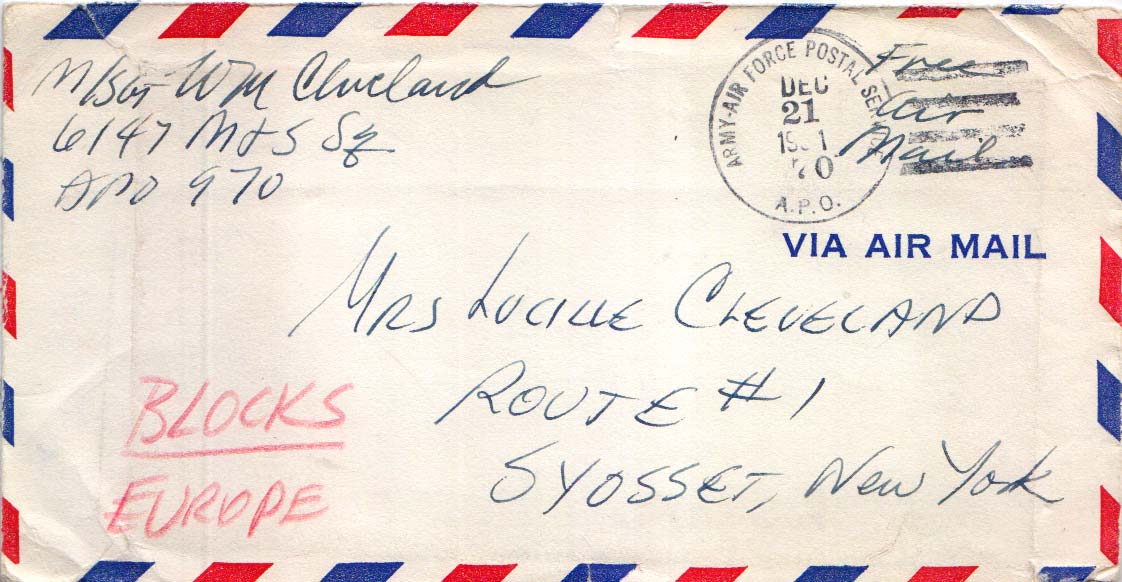 M/Sgt Wm Cleveland
6147 M&S Sq
APO 970
ARMY-AIR FORCE POSTAL SE
DEC
21
1951
70
A.P.O.
Free
Air
Mail
VIA AIR MAIL
MRS LUCILLE CLEVELAND
ROUTE #1
SYOSSET, New York
BLOCKS
EUROPE